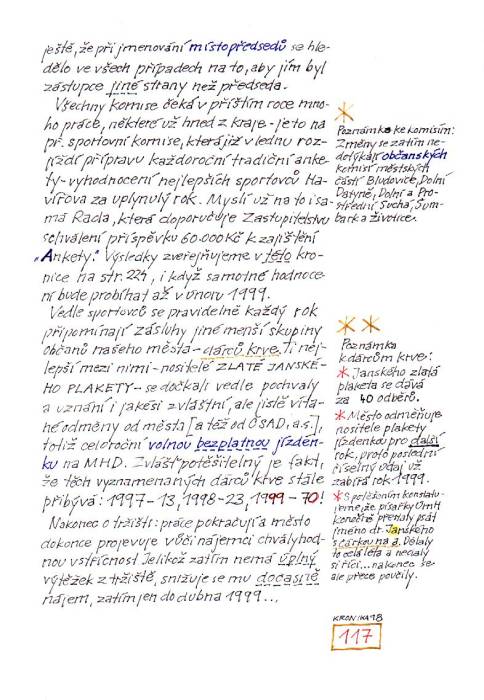 ještě, že při jmenování místopředsedů se hle-
dělo ve všech případech na to, aby jím byl
zástupce jiné strany než předseda.
Všechny komise čeká v příštím roce mno-
ho práce, některé už hned z kraje - je to na
př. sportovní komise, která již v lednu roz-
jíždí přípravu každoroční tradiční anke-
ty - vyhodnocení nejlepších sportovců Ha-
vířova za uplynulý rok. Myslí už na to i sa-
má Rada, která doporučuje Zastupitelstvu
schválení příspěvku 60.000 Kč k zajištění
"Ankety". Výsledky zveřejňujeme v této kro-
nice na str. 224, i když samotné hodnoce-
ní bude probíhat až v únoru 1999.
Vedle sportovců se pravidelně každý rok
připomínají zásluhy jiné menší skupiny
občanů našeho města - dárců krve. Ti nej-
lepší mezi nimi - nositelé ZLATÉ JANSKÉ-
HO PLAKETY - se dočkali vedle pochvaly
a uznání i jakési zvláštní, ale jistě víta-
né odměny od města [a též od ČSAD, a.s.],
totiž celoroční volnou bezplatnou jízden-
ku na MHD. Zvlášť potěšitelný je fakt,
že těch vyznamenaných dárců krve stále
přibývá: 1997 - 13, 1998 - 23, 1999 - 70!
Nakonec o tržišti: práce pokračují a město
dokonce projevuje vůči nájemci chvályhod-
nou vstřícnost. Jelikož zatím nemá úplný
výtěžek z tržiště, snižuje se mu dočasně
nájem, zatím jen do dubna 1999...
*
Poznámka ke komisím:
Změny se zatím ne-
dotýkají občanských
komisí městských
částí Bludovice, Dolní
Datyně, Dolní a Pro-
střední Suchá, Šum-
bark a Životice.
* *
Poznámka
k dárcům krve:
* Janského zlatá
plaketa se dává
za 40 odběrů.
* Město odměňuje
nositele plakety
jízdenkou pro další
rok, proto poslední
číselný údaj už
zabírá rok 1999.
* S potěšením konstatu-
jeme, že písařky ÚMH
konečně přestaly psát
jméno dr. Janského
s čárkou na a. Dělaly
to celá léta a nedaly
si říci... nakonec se
ale přece poučily.
KRONIKA 98
117